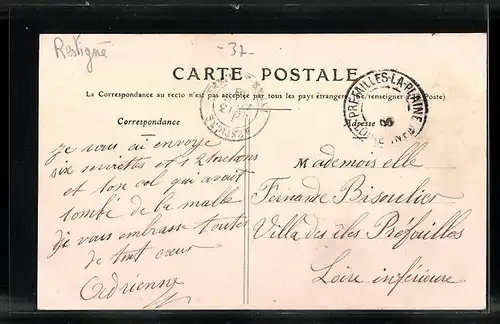 Restigné
-37-
CARTE POSTALE
La Correspondance au recto n'est pas acceptée par tous les pays étrangers (se renseigner à la Poste)
Correspondance
Adresse
RESTIGNÉ
PRÉFAILLES-LA-PLAINE
LOIRE INFRE
je vous ai envoyé
six serviettes et 12 torchons
et ton col qui avait
tombé de la malle
Je vous embrasse toutes
de tout cœur
Adrienne
Mademoiselle
Fernande Bisoulier
Villa des iles Préfailles
Loire inférieure